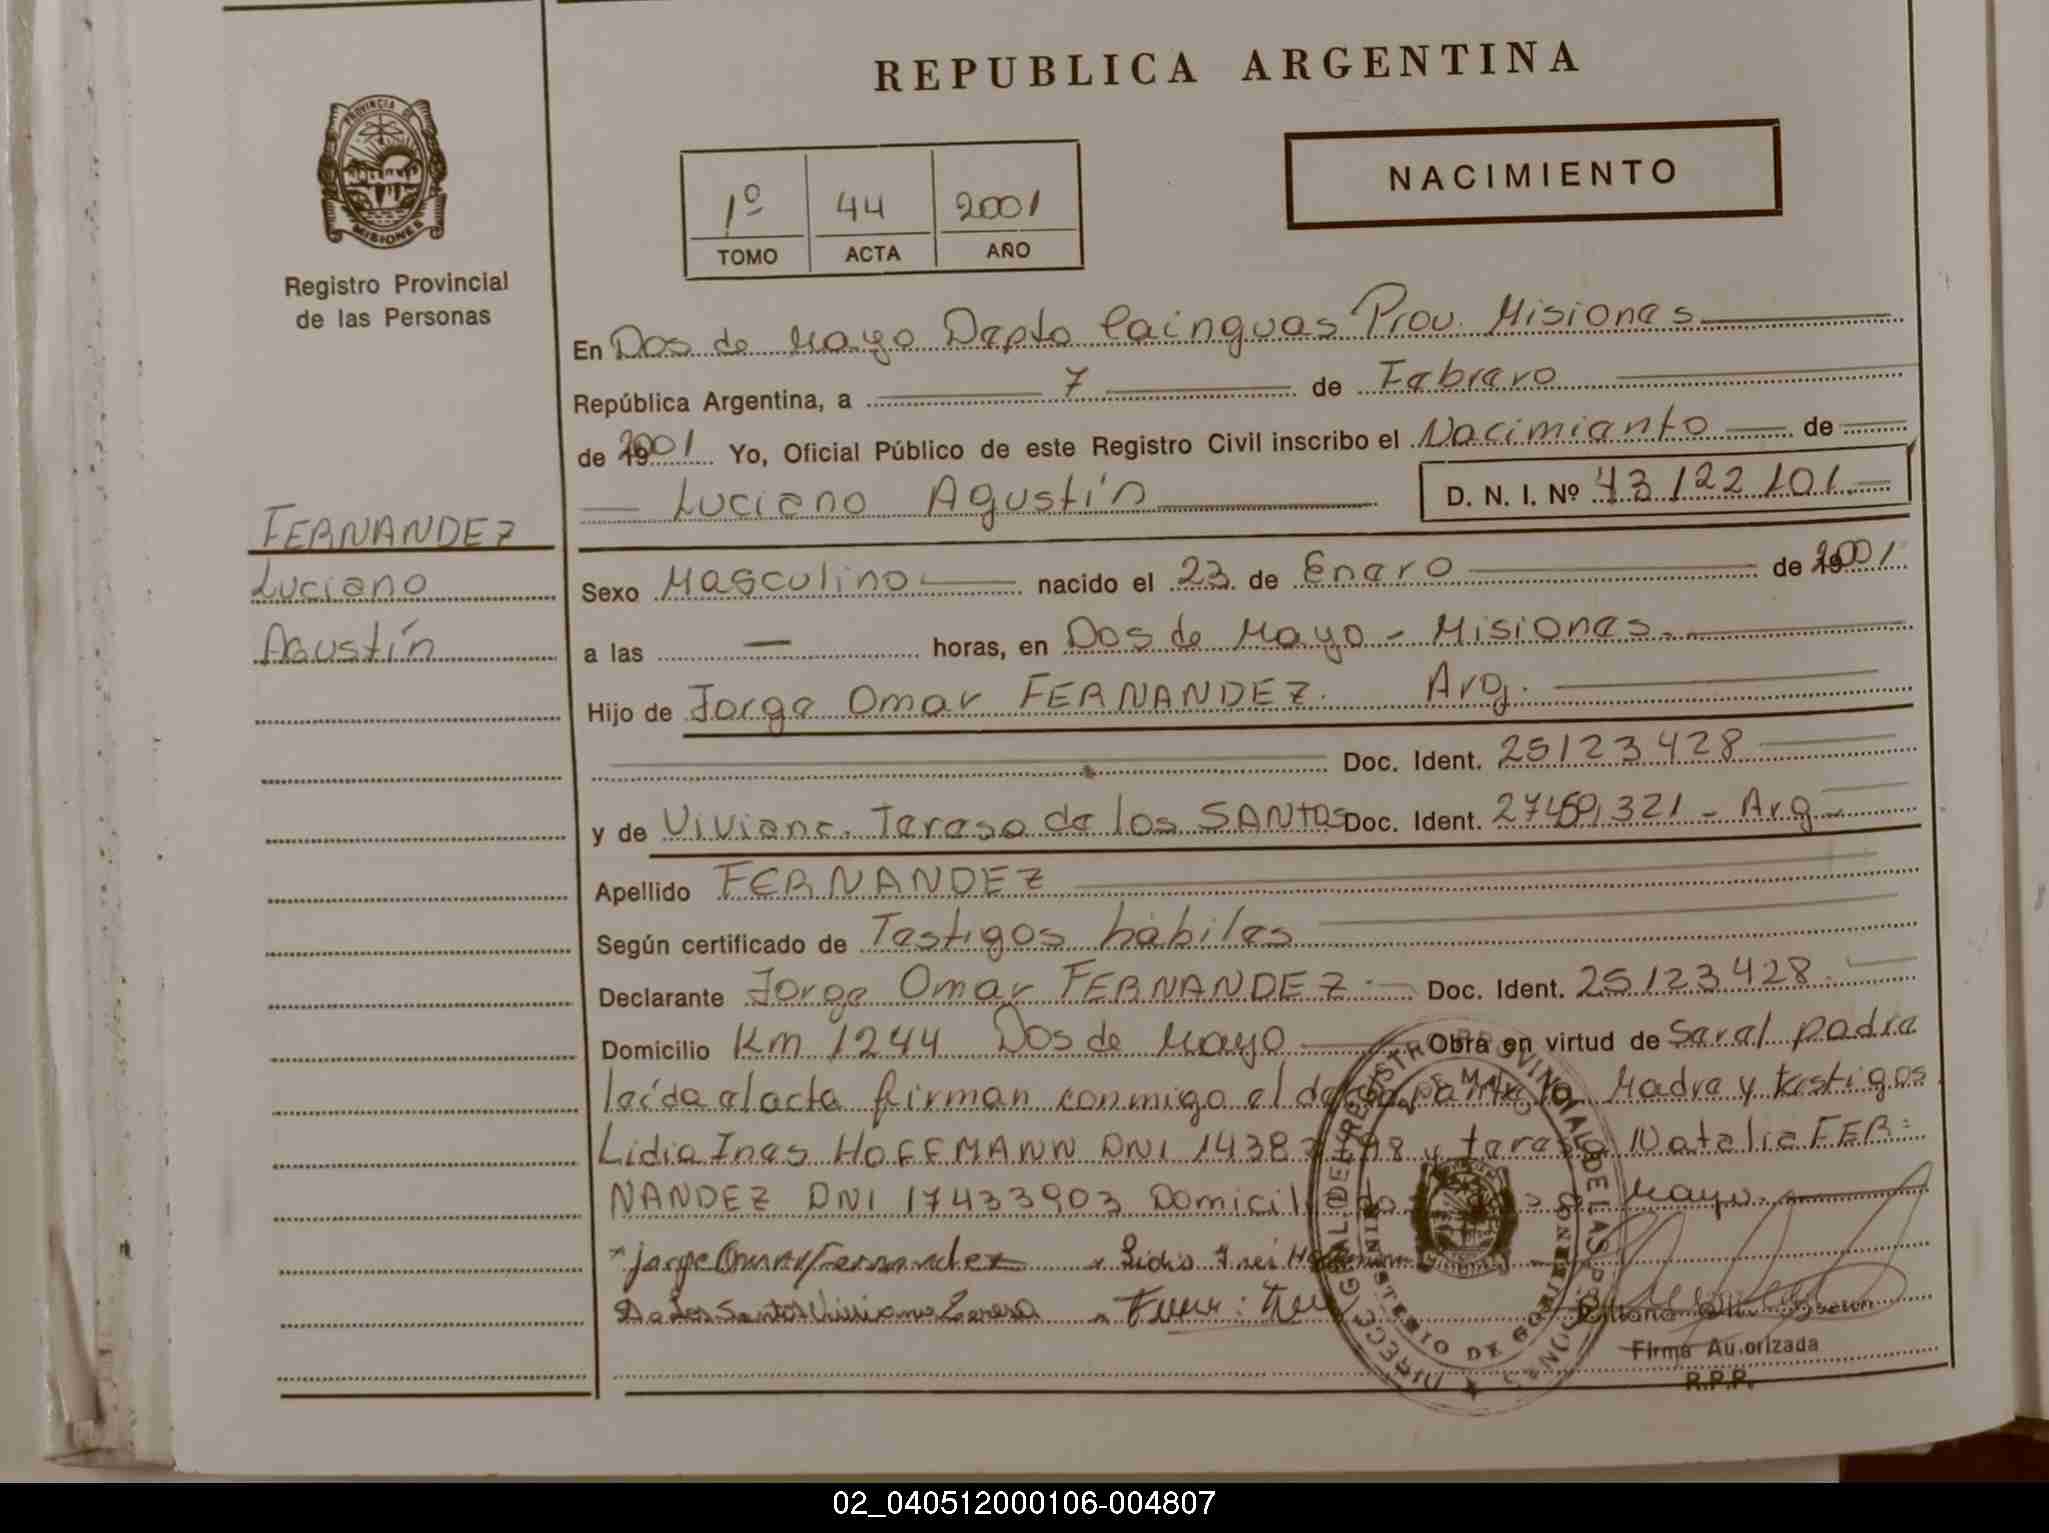 REPUBLICA ARGENTINA
PROVINCIA DE
MISIONES
Registro Provincial
de las Personas
1º 44 2001
TOMO ACTA AÑO
NACIMIENTO
En Dos de Mayo Depto Cainguas Prov. Misiones
República Argentina, a 7 de Febrero
de 2001 Yo, Oficial Público de este Registro Civil inscribo el Nacimiento de
Luciano Agustín D. N. I. Nº 43122101.
FERNANDEZ
Luciano
Agustín
Sexo Masculino nacido el 23 de Enero de 2001
a las — horas, en Dos de Mayo - Misiones.
Hijo de Jorge Omar FERNANDEZ. Arg.
Doc. Ident. 25123428
y de Viviana Teresa de los SANTOS Doc. Ident. 321 - Arg
Apellido FERNANDEZ
Según certificado de Testigos hábiles
Declarante Jorge Omar FERNANDEZ. Doc. Ident. 25123428.
Domicilio Km 1244 Dos de Mayo Obra en virtud de Ser el padre
leída el acta firman conmigo el Madre y testigos
Lidia Ines HOFFMANN DNI y Teresa Natalia FER=
NANDEZ DNI 17433903 Mayo.
Jorge Omar Fernandez Lidia
De Los Santos Viviana Teresa
Firma Autorizada
R.P.P.
02_040512000106-004807